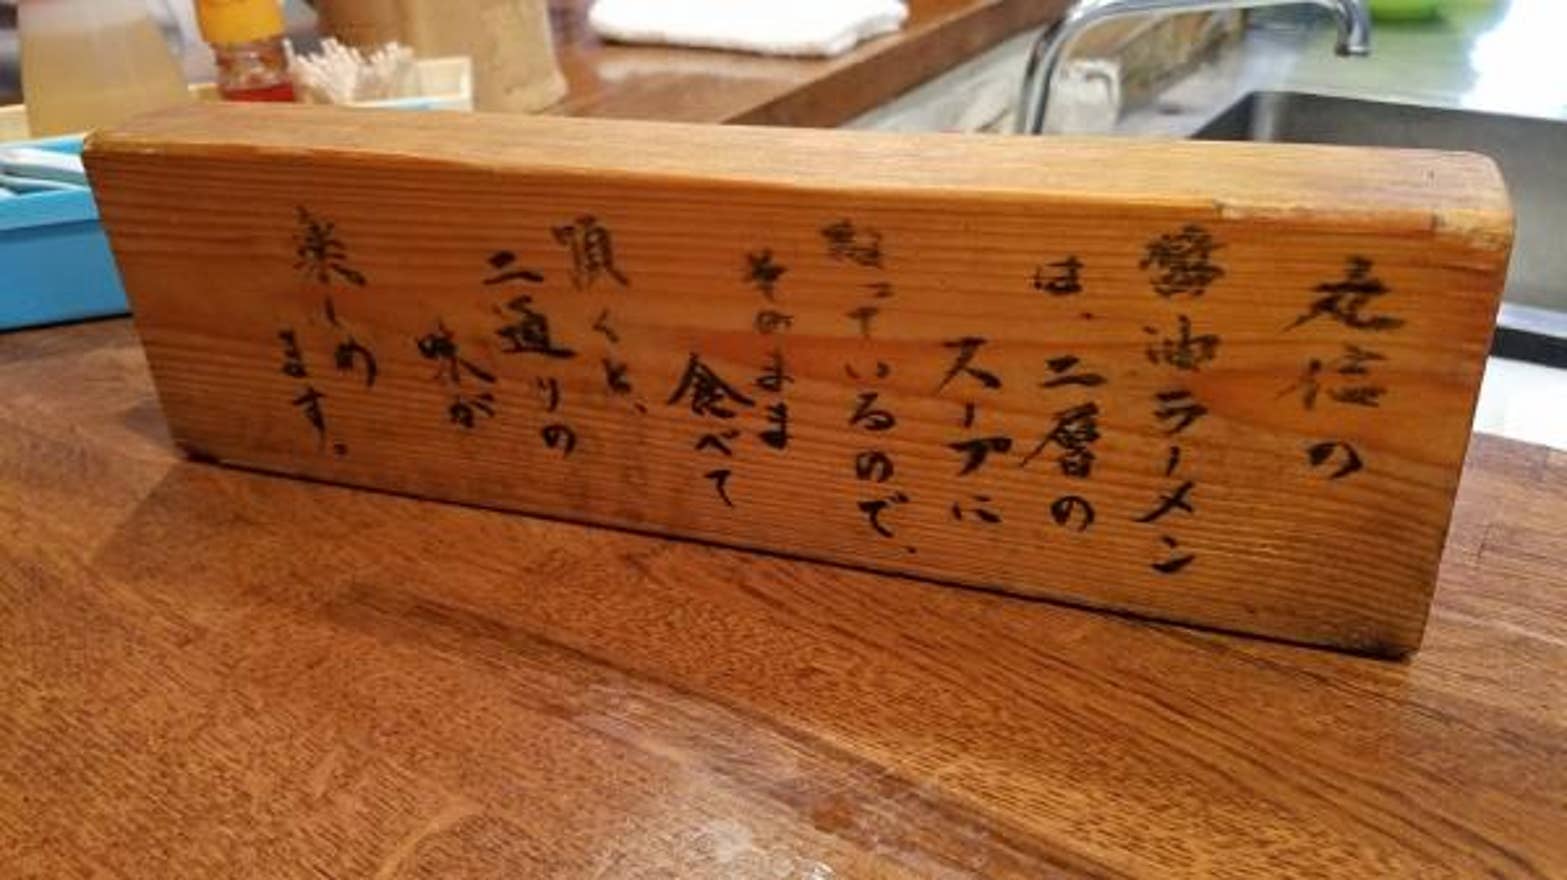 丸信の
醤油ラーメン
は、二層の
スープに
なっているので、
そのまま
食べて
頂くと、
二通りの
味が
楽しめ
ます。